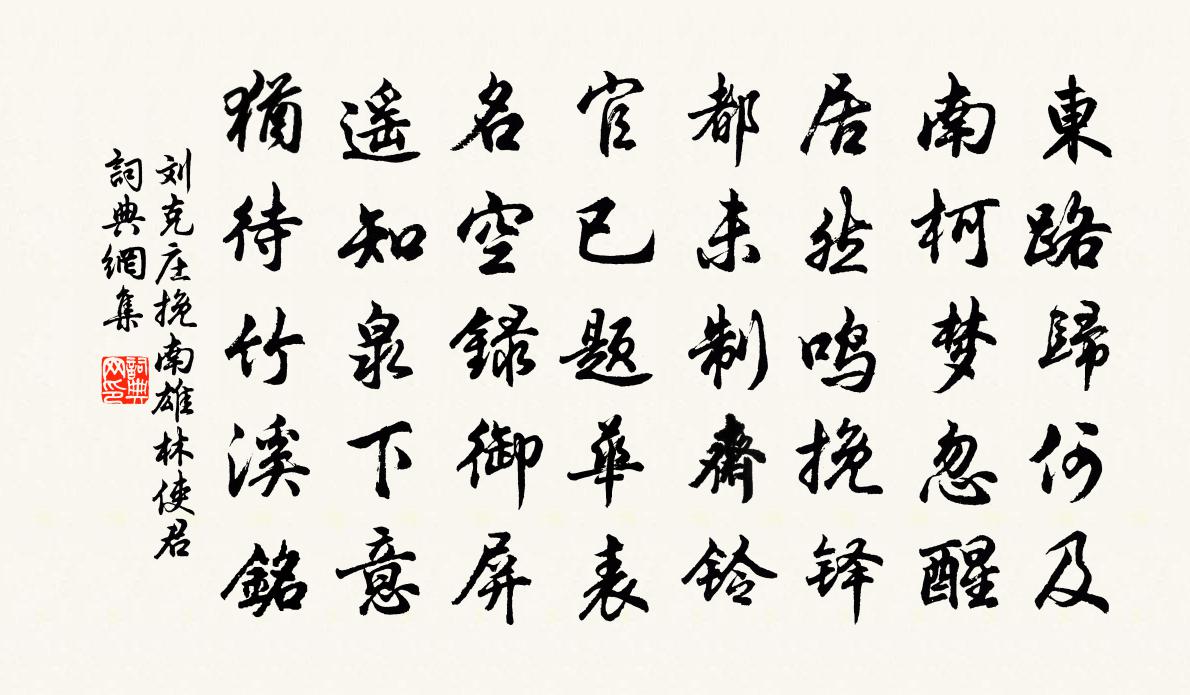 東路歸何及
南柯梦忽醒
居然鸣挽铎
都未制齋鈴
官已題華表
名空録御屏
遥知泉下意
猶待竹溪銘
刘克庄挽南雄林使君
詞典網集
詞典网印